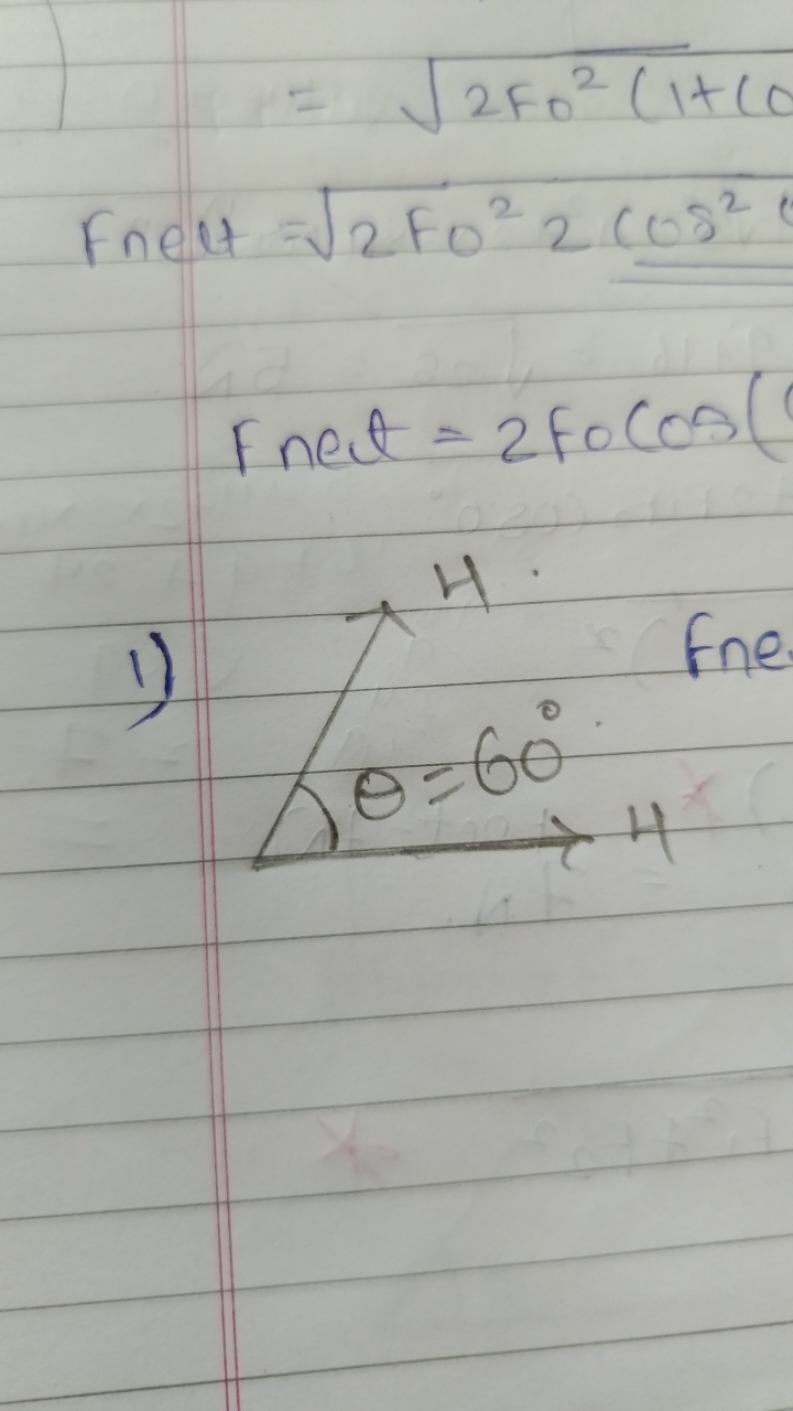 = √2F0² (1+CO
Fnet = √2F0² 2 COS²
Fnet = 2F0 COS (
4
1) Fne
θ = 60°
4